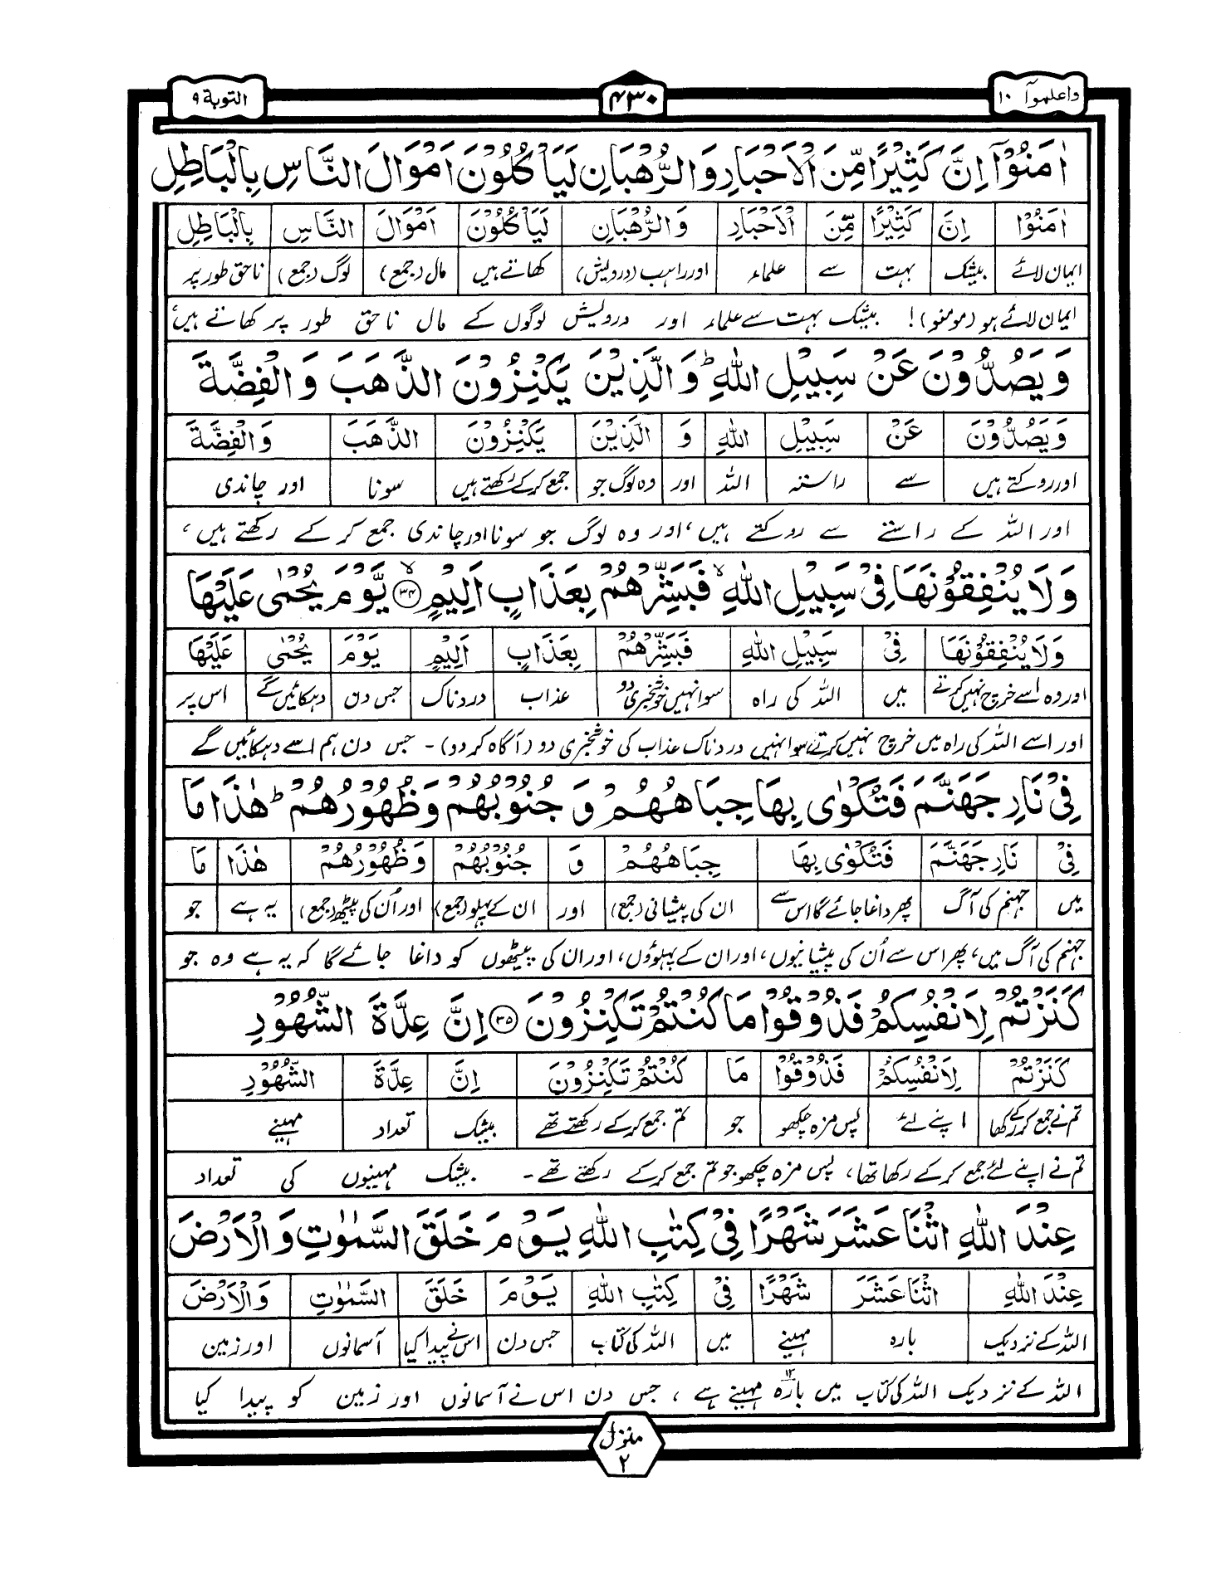 واعلموآ ١٠
۴۳۰
التوبة ٩
اٰمَنُوْۤا اِنَّ كَثِيْرًا مِّنَ الْاَحْبَارِ وَالرُّهْبَانِ لَيَاْكُلُوْنَ اَمْوَالَ النَّاسِ بِالْبَاطِلِ
اٰمَنُوْۤا اِنَّ كَثِيْرًا مِّنَ الْاَحْبَارِ وَالرُّهْبَانِ لَيَاْكُلُوْنَ اَمْوَالَ النَّاسِ بِالْبَاطِلِ
ایمان لائے بیشک بہت سے علماء اور راہب (درویش) کھاتے ہیں مال (جمع) لوگ (جمع) ناحق طور پر
ایمان لائے ہو (مومنو)! بیشک بہت سے علماء اور درویش لوگوں کے مال ناحق طور پر کھاتے ہیں
وَيَصُدُّوْنَ عَنْ سَبِيْلِ اللّٰهِ ؕ وَالَّذِيْنَ يَكْنِزُوْنَ الذَّهَبَ وَالْفِضَّةَ
وَيَصُدُّوْنَ عَنْ سَبِيْلِ اللّٰهِ وَ الَّذِيْنَ يَكْنِزُوْنَ الذَّهَبَ وَالْفِضَّةَ
اور روکتے ہیں سے راستہ اللہ اور وہ لوگ جو جمع کر کے رکھتے ہیں سونا اور چاندی
اور اللہ کے راستے سے روکتے ہیں، اور وہ لوگ جو سونا اور چاندی جمع کر کے رکھتے ہیں،
وَلَا يُنْفِقُوْنَهَا فِيْ سَبِيْلِ اللّٰهِ ۙ فَبَشِّرْهُمْ بِعَذَابٍ اَلِيْمٍ ۙ﴿۳۴﴾ يَّوْمَ يُحْمٰى عَلَيْهَا
وَلَا يُنْفِقُوْنَهَا فِيْ سَبِيْلِ اللّٰهِ فَبَشِّرْهُمْ بِعَذَابٍ اَلِيْمٍ يَوْمَ يُحْمٰى عَلَيْهَا
اور وہ اسے خرچ نہیں کرتے میں اللہ کی راہ سو انہیں خوشخبری دو عذاب دردناک جس دن دہکائیں گے اس پر
اور اسے اللہ کی راہ میں خرچ نہیں کرتے، سو انہیں دردناک عذاب کی خوشخبری دو (آگاہ کر دو)۔ جس دن ہم اسے دہکائیں گے
فِيْ نَارِ جَهَنَّمَ فَتُكْوٰى بِهَا جِبَاهُهُمْ وَ جُنُوْبُهُمْ وَظُهُوْرُهُمْ ؕ هٰذَا مَا
فِيْ نَارِ جَهَنَّمَ فَتُكْوٰى بِهَا جِبَاهُهُمْ وَ جُنُوْبُهُمْ وَظُهُوْرُهُمْ هٰذَا مَا
میں جہنم کی آگ پھر داغا جائے گا اس سے ان کی پیشانی (جمع) اور ان کے پہلو (جمع) اور اُن کی پیٹھ (جمع) یہ ہے جو
جہنم کی آگ میں، پھر اس سے اُن کی پیشانیوں، اور ان کے پہلوؤں، اور ان کی پیٹھوں کو داغا جائے گا کہ یہ ہے وہ جو
كَنَزْتُمْ لِاَنْفُسِكُمْ فَذُوْقُوْا مَا كُنْتُمْ تَكْنِزُوْنَ ﴿۳۵﴾ اِنَّ عِدَّةَ الشُّهُوْرِ
كَنَزْتُمْ لِاَنْفُسِكُمْ فَذُوْقُوْا مَا كُنْتُمْ تَكْنِزُوْنَ اِنَّ عِدَّةَ الشُّهُوْرِ
تم نے جمع کر کے رکھا اپنے لئے پس مزہ چکھو جو تم جمع کر کے رکھتے تھے بیشک تعداد مہینے
تم نے اپنے لئے جمع کر کے رکھا تھا، پس مزہ چکھو جو تم جمع کر کے رکھتے تھے۔ بیشک مہینوں کی تعداد
عِنْدَ اللّٰهِ اثْنَا عَشَرَ شَهْرًا فِيْ كِتٰبِ اللّٰهِ يَوْمَ خَلَقَ السَّمٰوٰتِ وَالْاَرْضَ
عِنْدَ اللّٰهِ اثْنَا عَشَرَ شَهْرًا فِيْ كِتٰبِ اللّٰهِ يَوْمَ خَلَقَ السَّمٰوٰتِ وَالْاَرْضَ
اللہ کے نزدیک بارہ مہینے میں اللہ کی کتاب جس دن اس نے پیدا کیا آسمانوں اور زمین
اللہ کے نزدیک اللہ کی کتاب میں بارہ ۱۲ مہینے ہے، جس دن اس نے آسمانوں اور زمین کو پیدا کیا
منزل
۲